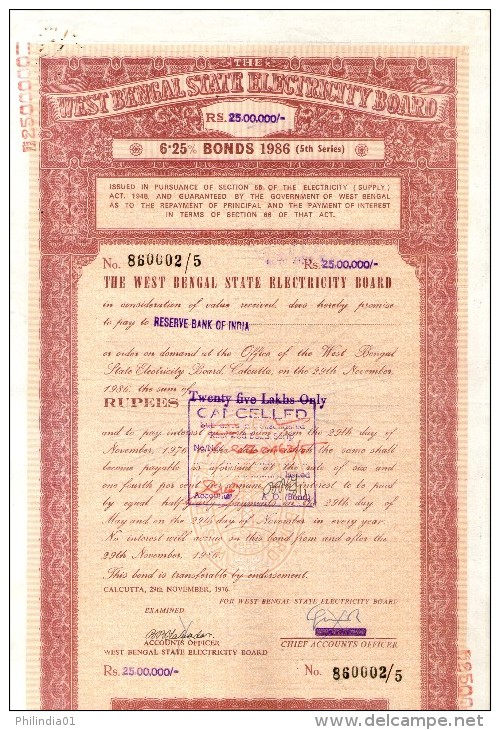 ₨2500000
THE
WEST BENGAL STATE ELECTRICITY BOARD
RS. 25.00.000/-
6·25% BONDS 1986 (5th Series)
ISSUED IN PURSUANCE OF SECTION 65 OF THE ELECTRICITY (SUPPLY)
ACT, 1948, AND GUARANTEED BY THE GOVERNMENT OF WEST BENGAL
AS TO THE REPAYMENT OF PRINCIPAL AND THE PAYMENT OF INTEREST
IN TERMS OF SECTION 66 OF THAT ACT.
No. 860002/5 Rs. 25,00,000/-
THE WEST BENGAL STATE ELECTRICITY BOARD
in consideration of value received, does hereby promise
to pay to RESERVE BANK OF INDIA
or order on demand at the Office of the West Bengal
State Electricity Board, Calcutta, on the 29th November,
1986, the sum of
RUPEES Twenty five Lakhs Only
CANCELLED
and to pay interest from the 29th day of
November, 1976 the same shall
become payable as aforesaid at the rate of six and
one fourth per cent per annum interest to be paid
by equal half-yearly payments on 29th day of
May and on the 29th day of November in every year.
No interest will accrue on this bond from and after the
29th November, 1986.
Accounts A. O. (Bond)
This bond is transferable by endorsement.
CALCUTTA, 29TH NOVEMBER, 1976
FOR WEST BENGAL STATE ELECTRICITY BOARD
EXAMINED
ACCOUNTS OFFICER
WEST BENGAL STATE ELECTRICITY BOARD
CHIEF ACCOUNTS OFFICER
Rs. 25.00.000/- No. 860002/5
₨2500
Philindia01
delcampe.net